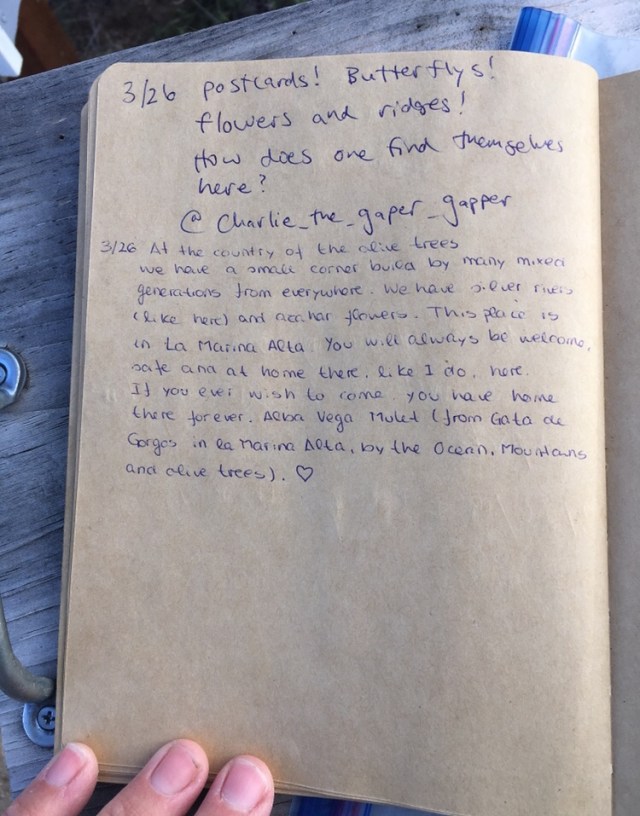 3/26 postcards! Butterflys!
flowers and ridges!
How does one find themselves
here?
@ Charlie_the_gaper_gapper
3/26 At the country of the olive trees
we have a small corner build by many mixed
generations from everywhere. We have silver rivers
(like here) and azahar flowers. This place is
in La Marina Alta. You will always be welcome,
safe and at home there, like I do, here.
If you ever wish to come, you have home
there forever. Alba Vega Mulet (from Gata de
Gorgos in la Marina Alta, by the Ocean, Mountains
and olive trees). ♡